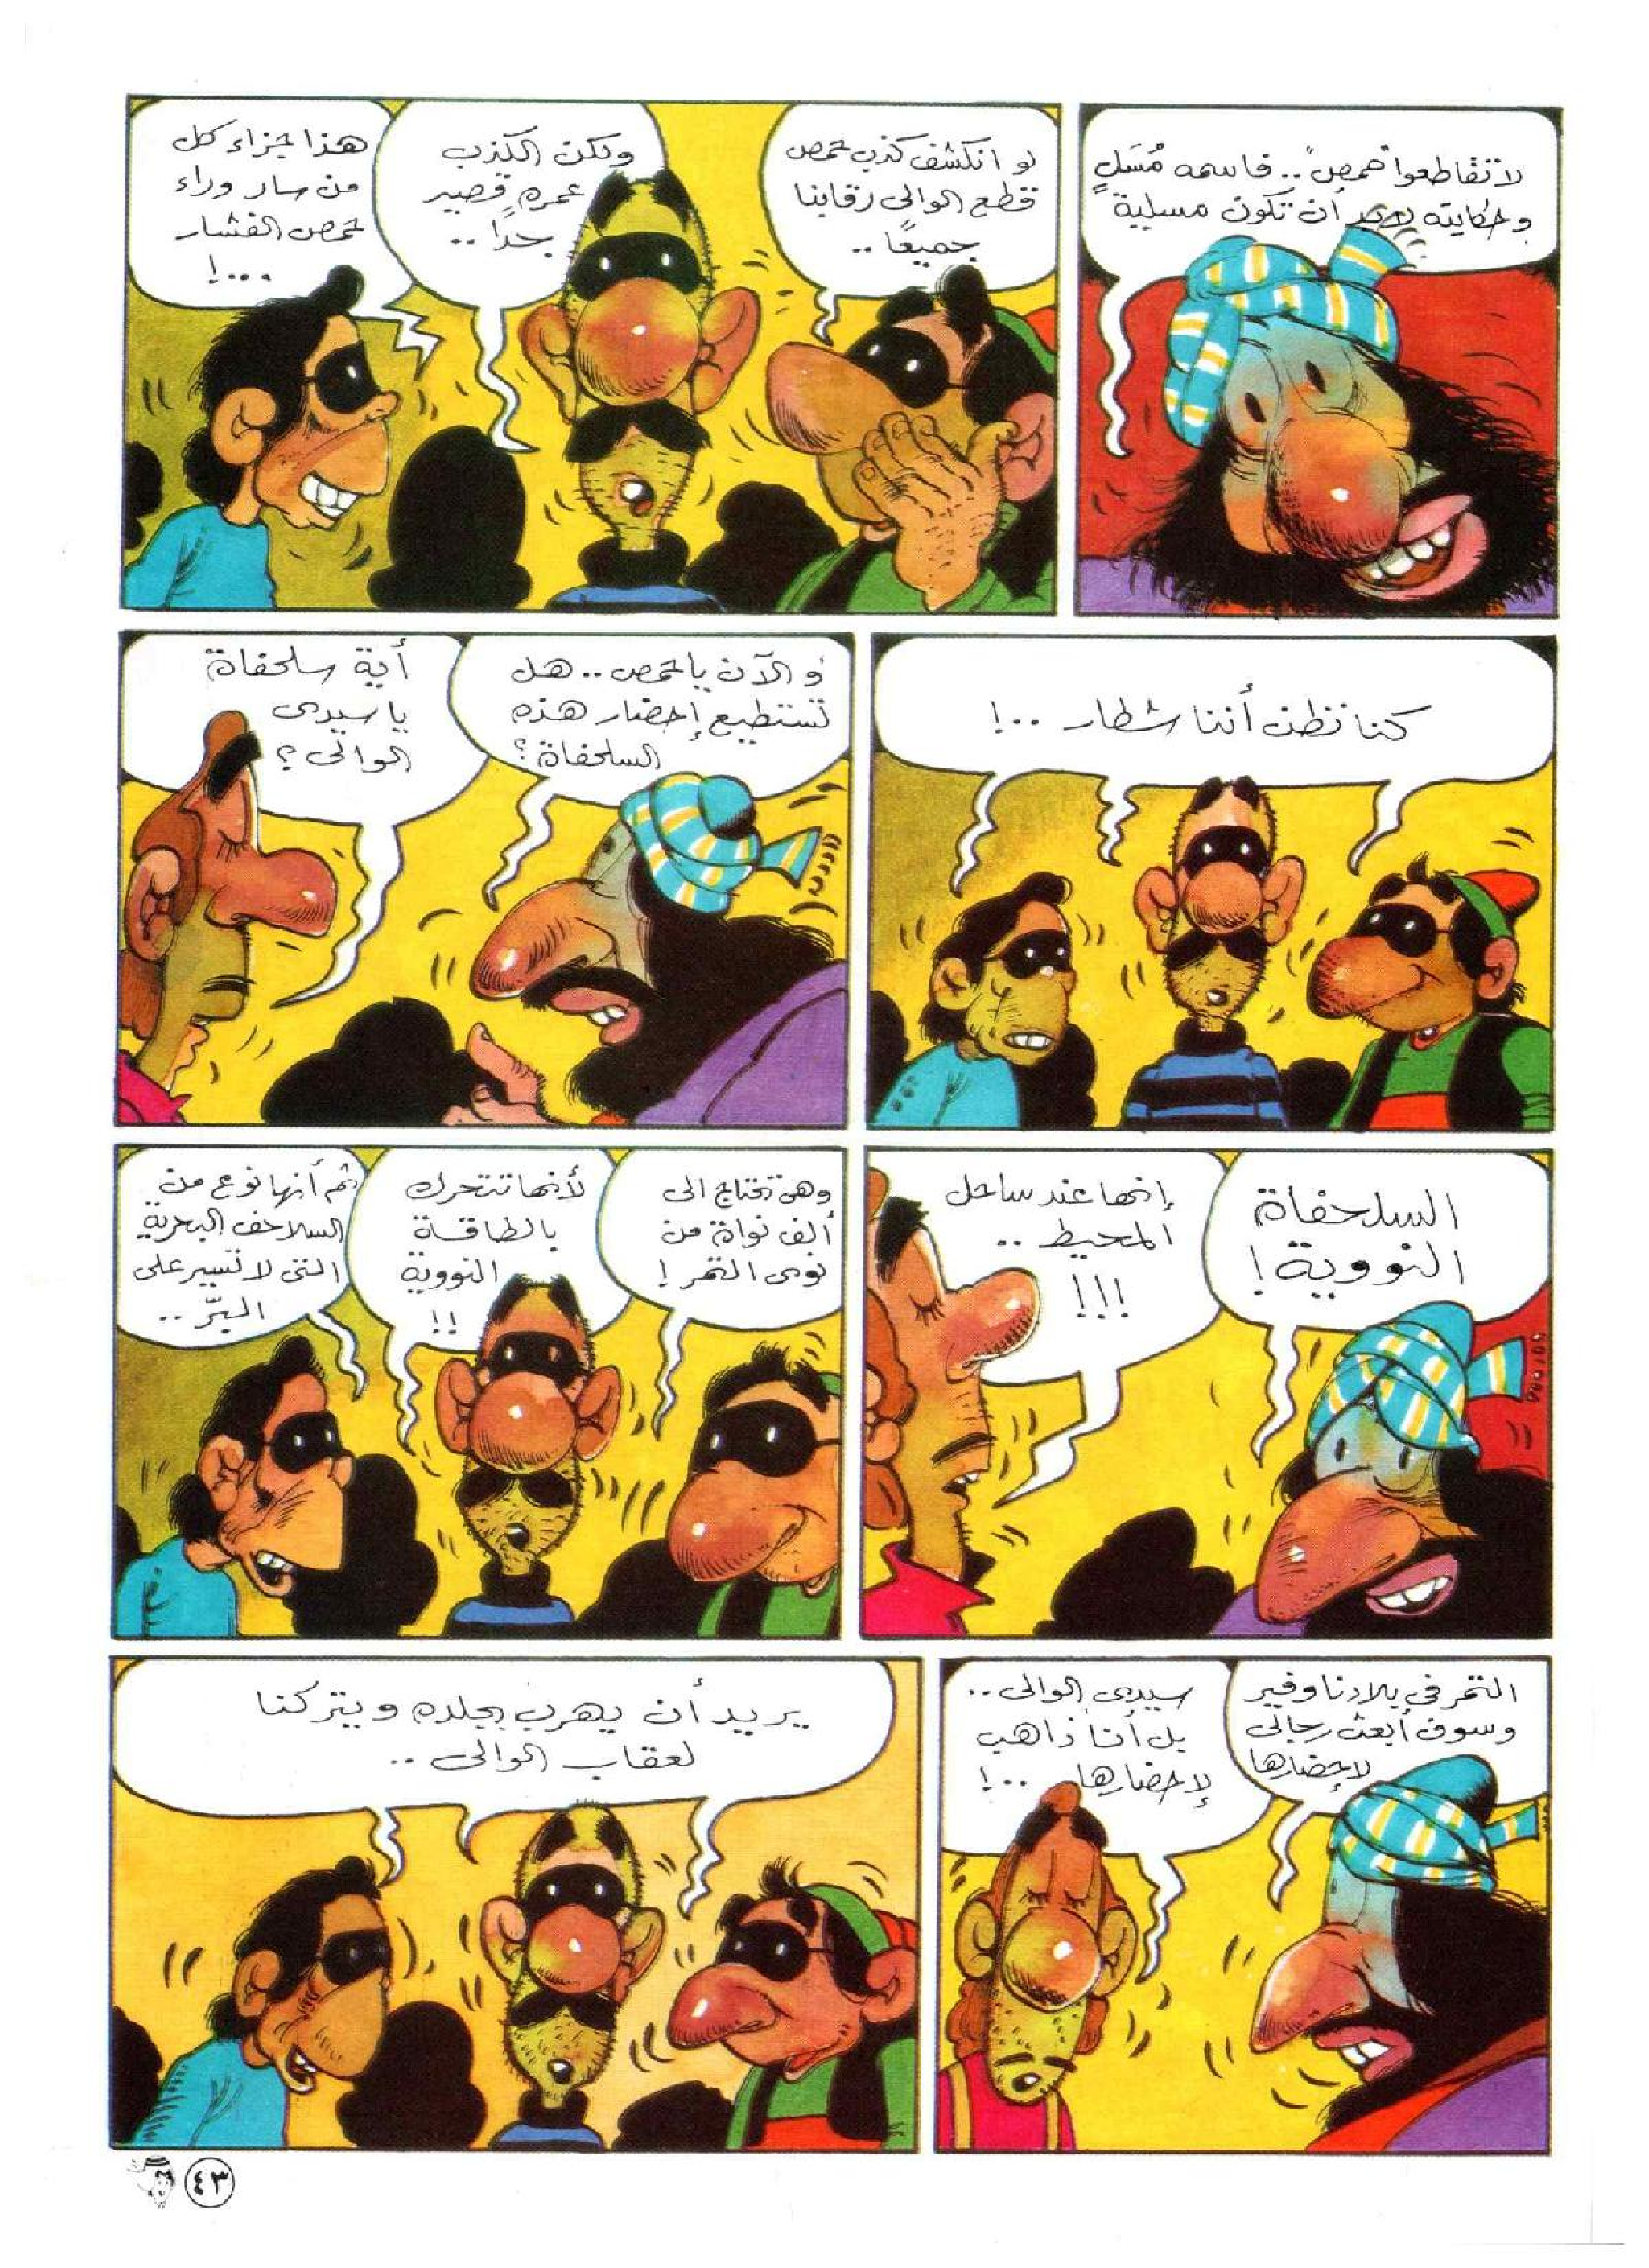 لا تقاطعوا "حمص" .. فاسمه مُسَلٍ
وحكايته لابد أن تكون مسلية
لو انكشف كذب حمص
قطع الوالى رقابنا
جميعًا ..
ولكن الكذب
عمره قصير
جدًا ..
هذا جزاء كل
من سار وراء
حمص الفشار
...!
كنا نظن أننا شطار ..!
والآن يا حمص .. هل
تستطيع إحضار هذه
السلحفاة؟
أية سلحفاة
يا سيدى
الوالى؟
السلحفاة
النووية!
إنها عند ساحل
المحيط ..
!!!
وهى تحتاج الى
ألف نواة من
نوى التمر!
لأنها تتحرك
بالطاقة
النووية
!!
ثم أنها نوع من
السلاحف البحرية
التى لا تسير على
البرّ ..
التمر في بلادنا وفير
وسوف أبعث رجالى
لإحضارها
سيدى الوالى ..
بل أنا ذاهب
لإحضارها ..!
يريد أن يهرب بجلده ويتركنا
لعقاب الوالى ..
٤٣